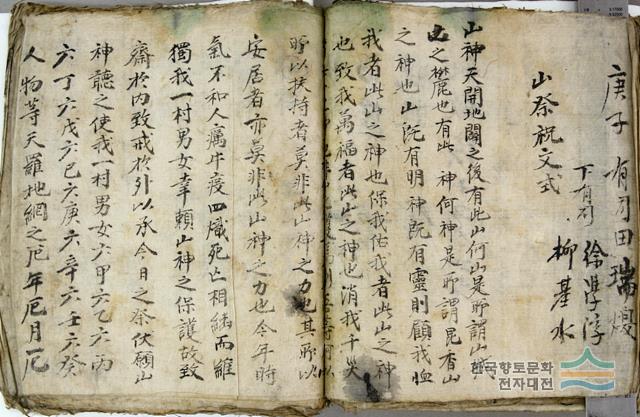 庚子 有司田瑞燮
下有司 徐學淳
柳基水
山祭祝文式
山神天開地闢之後有此山何山是所謂山
之麓也有此神何神是所謂昆香山
之神也山旣有明神旣有靈則顧我恤
我者此山之神也保我佑我者此山之神
也致我萬福者此山之神也消我千災
所以扶持者莫非此山神之力也其所以
安居者亦莫非此山神之力也今年時
氣不和人癘牛疫四熾死亡相繼而
獨我一村男女幸賴山神之保護故致
齋於內致戒於外以承今日之祭伏願山
神聽之使我一村男女六甲六乙六丙
六丁六戊六己六庚六辛六壬六癸
人物等天羅地網之厄年厄月厄
한국향토문화
전자대전